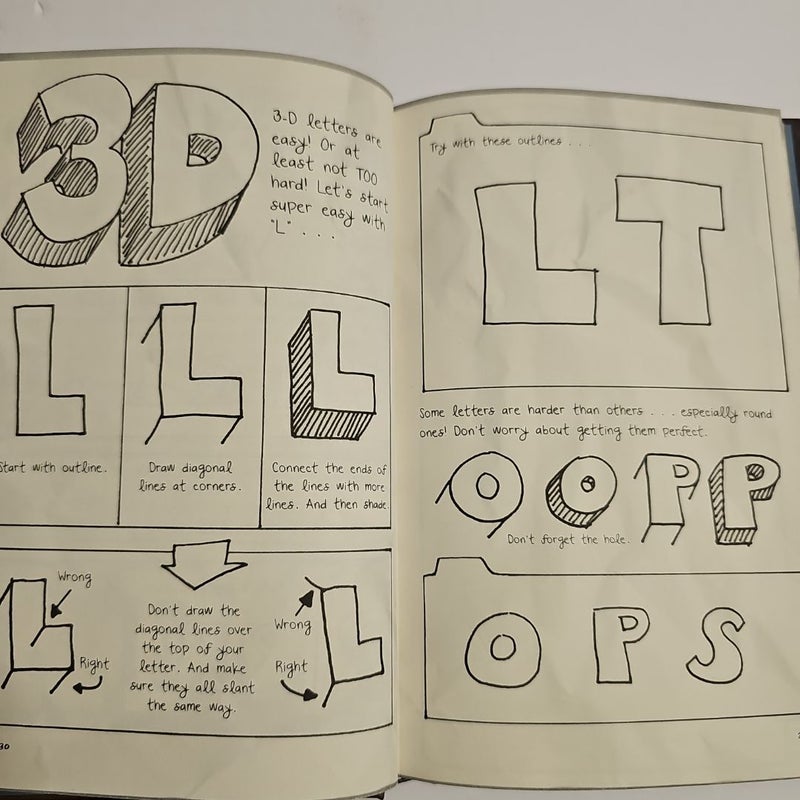 3D
3-D letters are
easy! Or at
least not TOO
hard! Let's start
super easy with
"L" . . .
L
Start with outline.
L
Draw diagonal
lines at corners.
L
Connect the ends of
the lines with more
lines. And then shade.
L
Wrong
Right
Don't draw the
diagonal lines over
the top of your
letter. And make
sure they all slant
the same way.
Wrong
Right
L
30
Try with these outlines . . .
L T
Some letters are harder than others . . . especially round
ones! Don't worry about getting them perfect.
O O P P
Don't forget the hole.
O P S